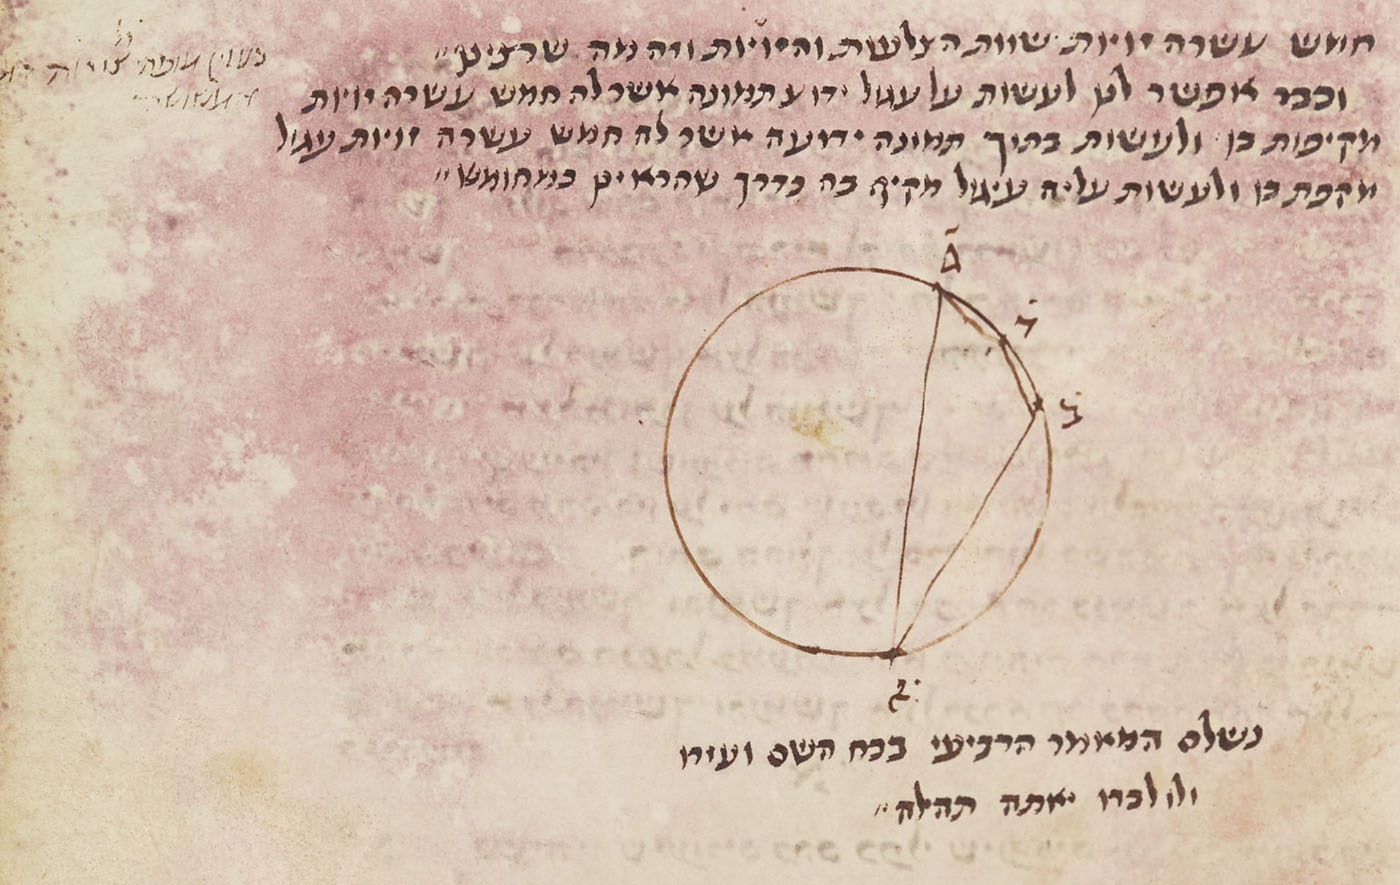 חמש עשרה זויות שוות הצלעות והזויות וזה מה שרצינו
וכבר אפשר לנו לעשות על עגול ידוע תמונה אשר לה חמש עשרה זויות
מקיפות בו ולעשות בתוך תמונה ידועה אשר לה חמש עשרה זויות עגול
מקפת בו ולעשות עליה עיגול מקיף בה כדרך שהראינו במחומש
א
ה
ב
ג
נשלם המאמר הרביעי בכח השם ועזרו
ולו לבדו יאתה תהלה